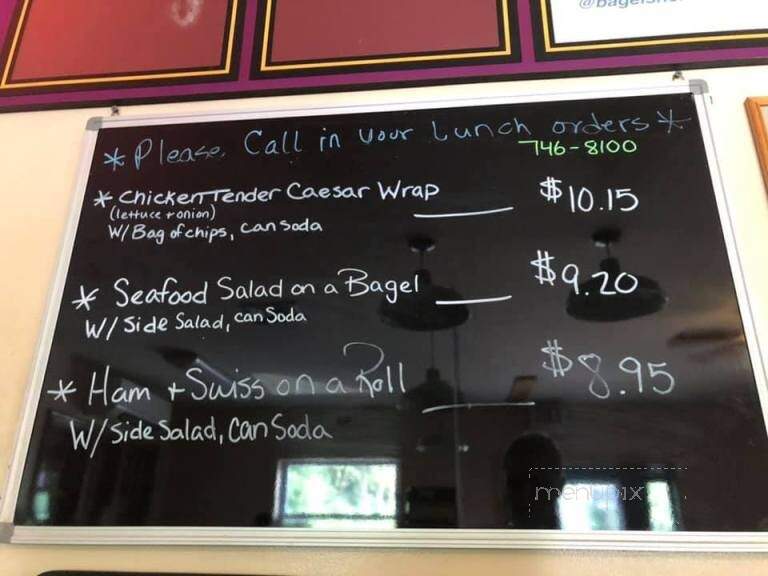 * Please, Call in your Lunch orders *
746-8100
* Chicken Tender Caesar Wrap ____ $10.15
(lettuce + onion)
W/ Bag of chips, can Soda
* Seafood Salad on a Bagel ____ $9.20
W/ Side Salad, can Soda
* Ham + Swiss on a Roll ____ $8.95
W/ Side Salad, Can Soda
menupix